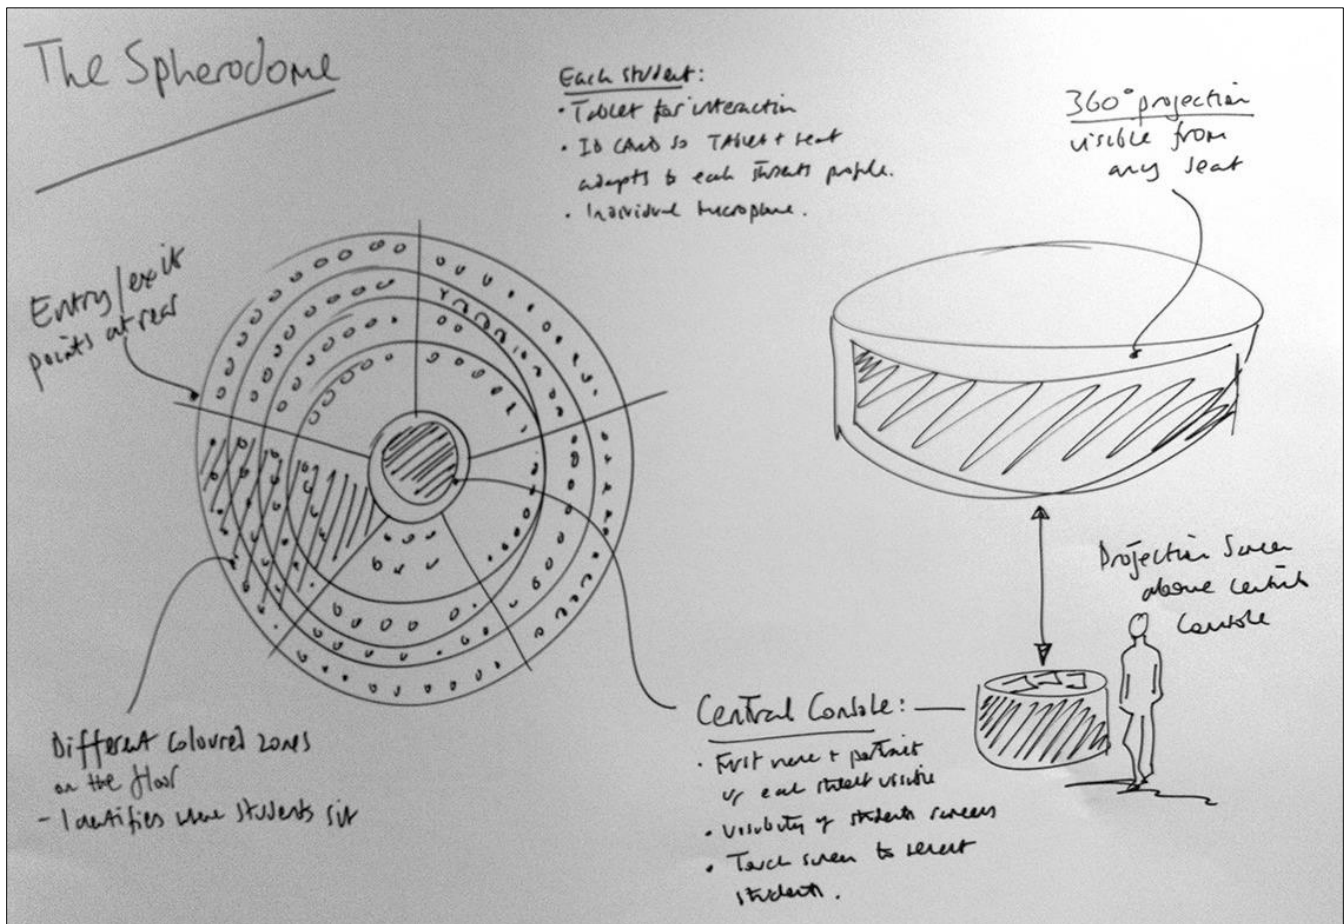 The Spherodome
Each student:
• Tablet for interaction
• ID CARD so TAblet + seat
adapts to each students profile.
• Individual microphone.
360° projection
visible from
any seat
Entry/exit
points at rear
Projection Screen
above central
Console
Different coloured zones
on the floor
- Identifies where students sit
Central Console:
• First name + portrait
of each student visible
• visibility of students screens
• Touch screen to select
students.